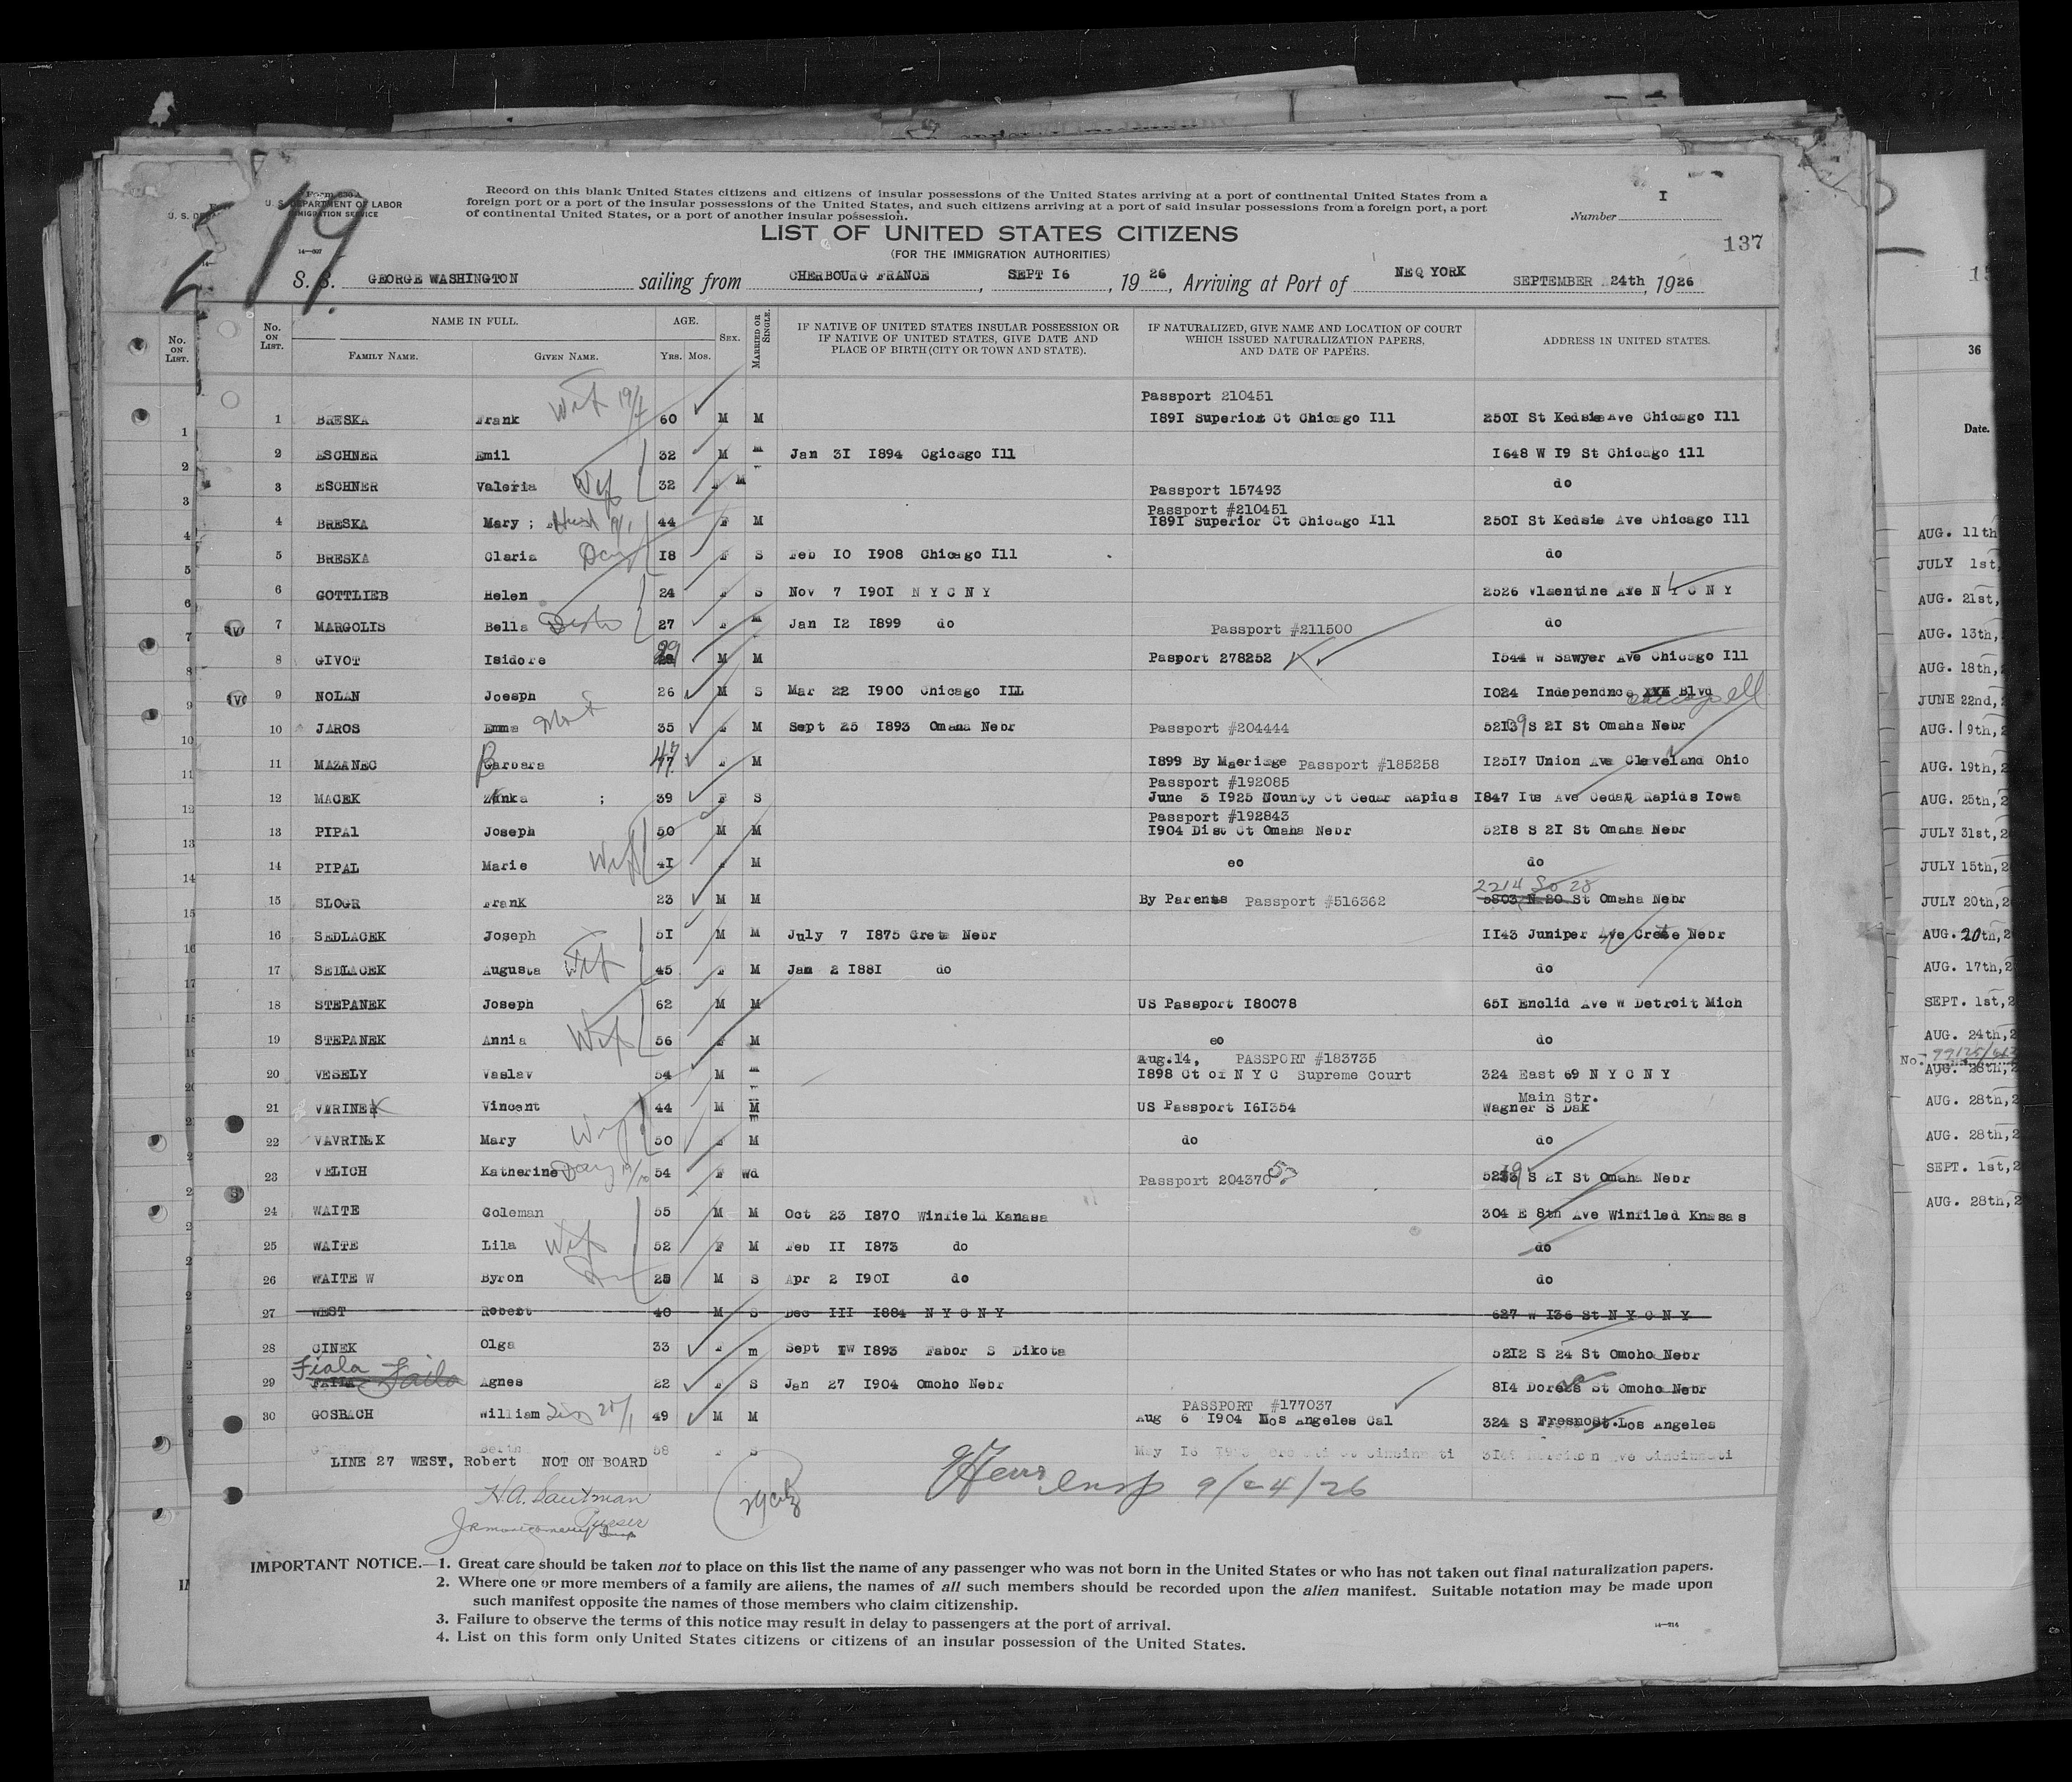 219.
U. S. DEPARTMENT OF LABOR
IMMIGRATION SERVICE
Record on this blank United States citizens and citizens of insular possessions of the United States arriving at a port of continental United States from a
foreign port or a port of the insular possessions of the United States, and such citizens arriving at a port of said insular possessions from a foreign port, a port
of continental United States, or a port of another insular possession.
Number I
LIST OF UNITED STATES CITIZENS
(FOR THE IMMIGRATION AUTHORITIES)
137
S. S. GEORGE WASHINGTON sailing from CHERBOURG FRANCE, SEPT I6, 1926, Arriving at Port of NEQ YORK SEPTEMBER 24th, 1926
No. ON LIST. NAME IN FULL. FAMILY NAME. GIVEN NAME. AGE. Yrs. Mos. SEX. MARRIED OR SINGLE. IF NATIVE OF UNITED STATES INSULAR POSSESSION OR IF NATIVE OF UNITED STATES, GIVE DATE AND PLACE OF BIRTH (CITY OR TOWN AND STATE). IF NATURALIZED, GIVE NAME AND LOCATION OF COURT WHICH ISSUED NATURALIZATION PAPERS, AND DATE OF PAPERS. ADDRESS IN UNITED STATES.
Passport 210451
1 BRESKA Frank Wife 19/4 60 M M I89I Superior Ct Chicago Ill 250I St Kedsie Ave Chicago Ill
2 ESCHNER Emil 32 M M Jan 3I I894 Cgicago Ill I648 W I9 St Chicago ill
3 ESCHNER Valeria Wife 32 F M Passport 157493 do
Passport #210451
4 BRESKA Mary ; Husd 9/1 44 F M I89I Superior Ct Chicago Ill 250I St Kedsie Ave Chicago Ill
5 BRESKA Claria Dau I8 F S Feb I0 I908 Chicago Ill do
6 GOTTLIEB Helen 24 F S Nov 7 I90I N Y C N Y 2526 Vlaentine Ave N Y C N Y
7 MARGOLIS Bella Sister 27 F M Jan I2 I899 do Passport #211500 do
8 GIVOT Isidore 29 M M Pasport 278252 I544 W Sawyer Ave Chicago Ill
9 NOLAN Joesph 26 M S Mar 22 I900 Chicago ILL I024 Independnce XXX Blvd Chicago Ill
10 JAROS Emma 35 F M Sept 25 I893 Omaha Nebr Passport #204444 52I39 S 2I St Omaha Nebr
11 MAZANEC Barbara 47 F M I899 By Maeriage Passport #185258 I25I7 Union Ave Cleveland Ohio
Passport #192085
12 MACEK Zinka ; 39 F S June 3 I925 Nounty Ct Cedar Rapids I847 Its Ave Cedar Rapids Iowa
Passport #192843
13 PIPAl Joseph 50 M M I904 Dist Ct Omaha Nebr 52I8 S 2I St Omaha Nebr
14 PIPAL Marie Wife 4I F M eo do
2214 So 28
15 SLOGR Frank 23 M M By Parents Passport #516362 5803 N 20 St Omaha Nebr
16 SEDLACEK Joseph 5I M M July 7 I875 Crete Nebr II43 Juniper Ave Crete Nebr
17 SEDLACEK Augusta Wife 45 F M Jan 2 I88I do do
18 STEPANEK Joseph 62 M M US Passport I80078 65I Enclid Ave W Detroit Mich
19 STEPANEK Annia Wife 56 F M eo do
Aug.14, PASSPORT #183735
20 VESELY Vaslav 54 M M I898 Ct of N Y C Supreme Court 324 East 69 N Y C N Y
Main Str.
21 VARINEK Vincent 44 M M US Passport I6I354 Wagner S Dak
22 VAVRINEK Mary Wife 50 F M do do
23 VELICH Katherine Dau 19/10 54 F Wd Passport 204370 S 2I St Omaha Nebr
24 WAITE Coleman 55 M M Oct 23 I870 Winfield Kanasa 304 E 8th Ave Winfiled Knasas
25 WAITE Lila Wife 52 F M Feb II I873 do do
26 WAITE W Byron 25 M S Apr 2 I90I do do
27 WEST Robert 40 M S Dec III I884 N Y C N Y 627 W I36 St N Y C N Y
28 CINEK Olga 33 F m Sept I893 Fabor S Dikota 52I2 S 24 St Omoho Nebr
Fiala
29 FAILA Faila Agnes 22 F S Jan 27 I904 Omoho Nebr 8I4 Dorcas St Omoho Nebr
PASSPORT #177037
30 GOSBACH William 49 M M Aug 6 I904 Los Angeles Cal 324 S Fresnost. Los Angeles
58 F S May I8 Cincinnati Ave Cincinnati
LINE 27 WEST, Robert NOT ON BOARD
H.A. Sautman
Purser
Insp 9/24/26
IMPORTANT NOTICE.—1. Great care should be taken not to place on this list the name of any passenger who was not born in the United States or who has not taken out final naturalization papers.
2. Where one or more members of a family are aliens, the names of all such members should be recorded upon the alien manifest. Suitable notation may be made upon
such manifest opposite the names of those members who claim citizenship.
3. Failure to observe the terms of this notice may result in delay to passengers at the port of arrival.
4. List on this form only United States citizens or citizens of an insular possession of the United States.
36
Date.
AUG. 11th
JULY 1st,
AUG. 21st,
AUG. 13th,
AUG. 18th,
JUNE 22nd,
AUG. 19th,
AUG. 19th,
AUG. 25th,
JULY 31st,
JULY 15th,
JULY 20th,
AUG. 20th,
AUG. 17th,
SEPT. 1st,
AUG. 24th,
AUG. 28th,
AUG. 28th,
AUG. 28th,
SEPT. 1st,
AUG. 28th,